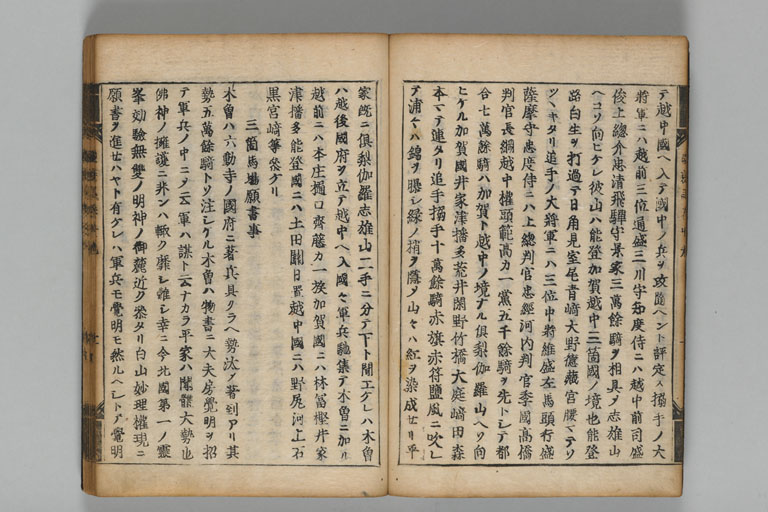 テ越中國ヘ入テ國中ノ兵ヲ攻隨ヘント評定ス搦手ノ大
將軍ニハ越前三位通盛三川守知度侍ニハ越中前司盛
俊上總介忠清飛驒守景家三萬餘騎ヲ相具メ志雄山
ヘコソ向ヒケレ彼山ハ能登加賀越中三箇國ノ境也能登
路白生ヲ打過テ日角見室尾青崎大野德藏宮腰マテソ
ツヽキタリ追手ノ大將軍ニハ三位中將維盛左馬頭行盛
薩摩守忠度侍ニハ上總判官忠經河内判官季國高橋
判官長綱越中權頭範高カ一黨五千餘騎ヲ先トシテ都
合七萬餘騎ハ加賀ト越中ノ境ナル俱梨伽羅山ヘソ向
ヒケル加賀國井家津播多荒井閑野竹橋大庭崎田森
本マテ連タリ追手搦手十萬餘騎赤旗赤符鹽風ニ吹レ
テ浦々ハ錦ヲ曝シ綠ノ梢ヲ蔭ク山々ハ紅ヲ染成セリ平
家既ニ俱梨伽羅志雄山二手ニ分テ下ト聞エケレハ木曽
ハ越後國府ヲ立テ越中ヘ入國々軍兵馳集テ木曽ニ加ル
越前ニハ本庄樋口齊藤カ一族加賀國ニハ林冨樫井家
津播多能登國ニハ土田關日置越中國ニハ野尻河上石
黒宮崎等參ケリ
三箇馬場願書事
木曽ハ六動寺ノ國府ニ著兵具クラヘ勢汰ノ著到アリ其
勢五萬餘騎トソ注シケル木曽ハ物書ニ大夫房覺明ヲ招
テ軍兵ノ中ニメ云軍ハ謀ト云ナカラ平家ハ聞體大勢也
佛神ノ擁護ニ非ンハ輙ク靡シ難シ幸ニ今北國第一ノ靈
峯効驗無雙ノ明神ノ御麓近ク參タリ白山妙理權現ニ
願書ヲ進セハヤト有ケレハ軍兵モ覺明モ然ルヘシトメ覺明